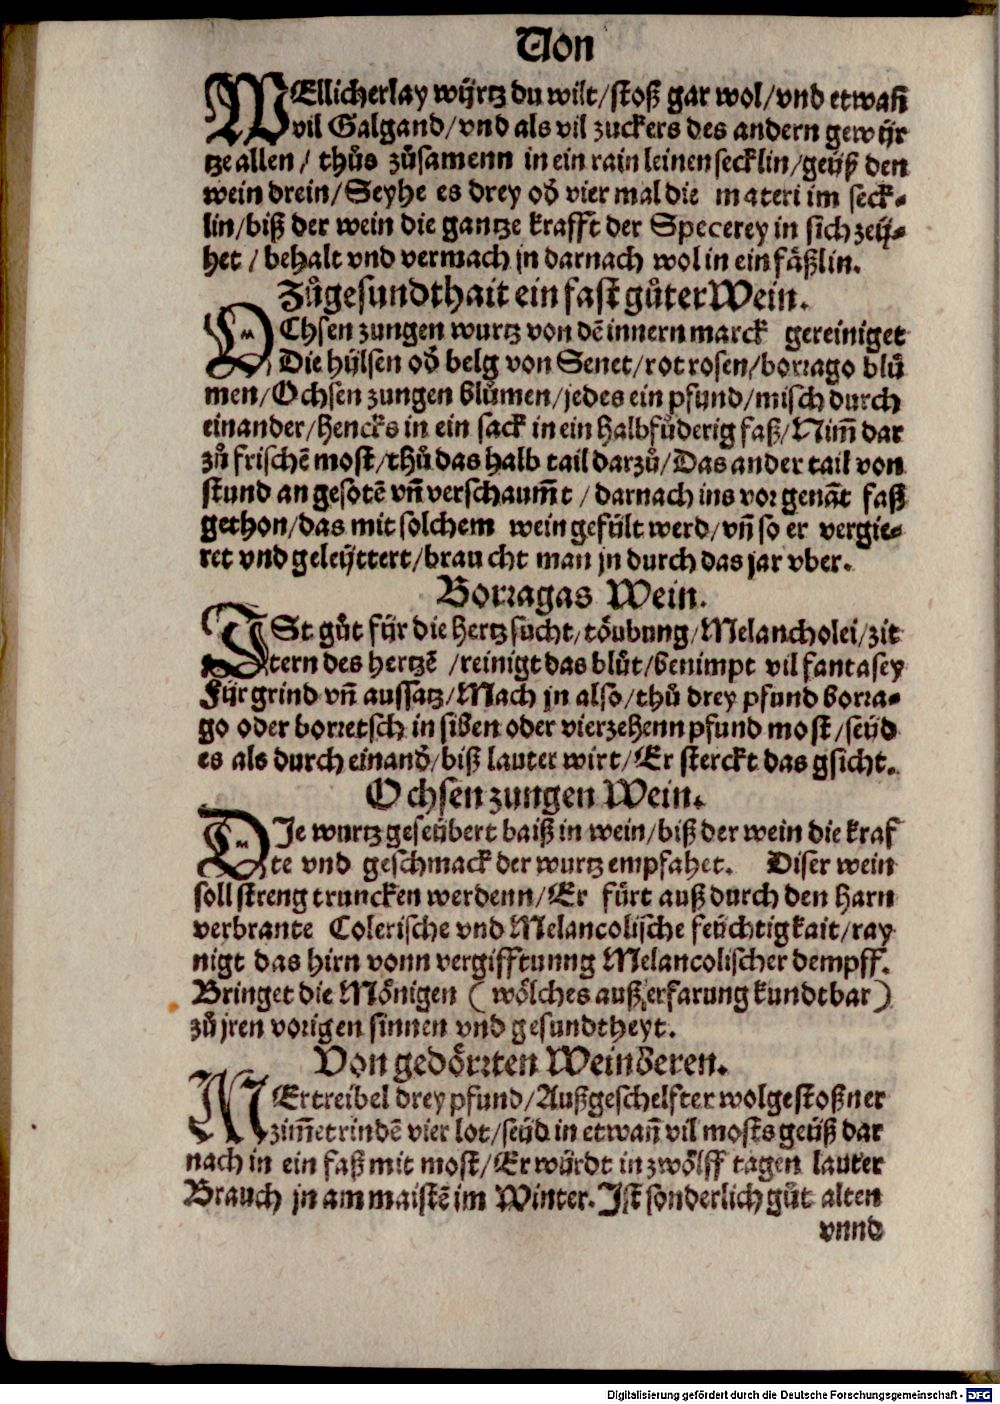 Von
WEllicherlay wÿrtz du wilt/stoß gar wol/vnd etwañ
vil Galgand/vnd als vil zuckers des andern gewÿr
tze allen/ thůs zůsamenn in ein rain leinen secklin/geüß den
wein drein/Seyhe es drey oď vier mal die materi im seck⸗
lin/biß der wein die gantze krafft der Specerey in sich zeü⸗
het/behalt vnd vermach jn darnach wol in ein fäßlin.
Zůgesundthait ein fast gůter Wein.
OChsen zungen wurtz von dē innern marck gereiniget
Die hülsen oď belg von Senet/rot rosen/borrago blů
men/Ochsen zungen blůmen/jedes ein pfund/misch durch
einander/hencks in ein sack in ein halbfůderig faß/Nim̄ dar
zů frischē most/thů das halb tail darzů/Das ander tail von
stund an gesotē vñ verschaum̄t/darnach ins vor genāt faß
gethon/das mit solchem wein gefült werd/vñ so er vergie⸗
ret vnd geleüttert/braucht man jn durch das jar vber.
Borragas Wein.
ISt gůt für die hertzsucht/töubung/Melancholei/zit
tern des hertzē/reinigt das blůt/benimpt vil fantasey
Für grind vñ aussatz/Mach jn also/thů drey pfund borra⸗
go oder borretsch in siben oder vierzehenn pfund most/seüd
es als durch einanď/biß lauter wirt/Er sterckt das gsicht.
Ochsen zungen Wein.
DIe wurtz geseübert baiß in wein/biß der wein die kraf
te vnd geschmack der wurtz empfahet. Diser wein
soll streng truncken werdenn/Er fürt auß durch den harn
verbrante Colerische vnd Melancolische feüchtigkait/ray
nigt das hirn vonn vergifftunng Melancolischer dempff.
Bringet die Mönigen (wölches auß erfarung kundtbar)
zů jren vorigen sinnen vnd gesundtheyt.
Von gedörrten Weinberen.
MErtreibel drey pfund/Außgeschelfter wolgestoßner
zim̄etrindē vier lot/seüd in etwañ vil mosts geüß dar
nach in ein faß mit most/Er würdt in zwölff tagen lauter
Brauch jn am maistē im Winter. Ist sonderlich gůt alten
vnnd
Digitalisierung gefördert durch die Deutsche Forschungsgemeinschaft - DFG